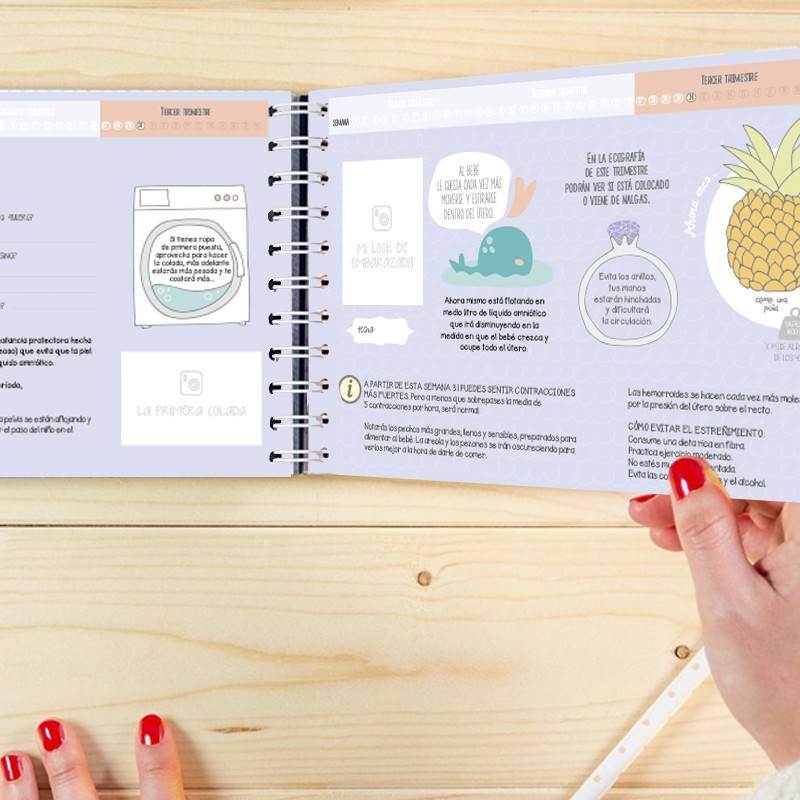 TERCER TRIMESTRE
Si tienes ropa
de primera puesta,
aprovecha para hacer
la colada, más adelante
estarás más pesada y te
costará más...
LA PRIMERA COLADA
stancia protectora hecha
que evita que la piel
quido amniótico.
ríodo,
a pelvis se están aflojando y
r el paso del niño en el
TERCER TRIMESTRE
SEMANA
MI LOOK DE
EMBARAZADA
fecha:
AL BEBÉ
LE CUESTA CADA VEZ MÁS
MOVERSE Y ESTIRARSE
DENTRO DEL ÚTERO.
Ahora mismo está flotando en
medio litro de líquido amniótico
que irá disminuyendo en la
medida en que el bebé crezca y
ocupe todo el útero.
EN LA ECOGRAFÍA
DE ESTE TRIMESTRE
PODRÁN VER SI ESTÁ COLOCADO
O VIENE DE NALGAS.
Evita los anillos,
tus manos
estarán hinchadas
y dificultará
la circulación.
Ahora eres...
como una
piña
i
A PARTIR DE ESTA SEMANA 31 PUEDES SENTIR CONTRACCIONES
MÁS FUERTES. Pero a menos que sobrepases la media de
5 contracciones por hora, será normal.
Notarás los pechos más grandes, llenos y sensibles, preparados para
alimentar al bebé. La areola y los pezones se irán oscureciendo para
verlos mejor a la hora de darle de comer.
Las hemorroides se hacen cada vez más moles
por la presión del útero sobre el recto.
CÓMO EVITAR EL ESTREÑIMIENTO:
Consume una dieta rica en fibra.
Practica ejercicio moderado.
No estés mu entada.
Evita las co y el alcohol.